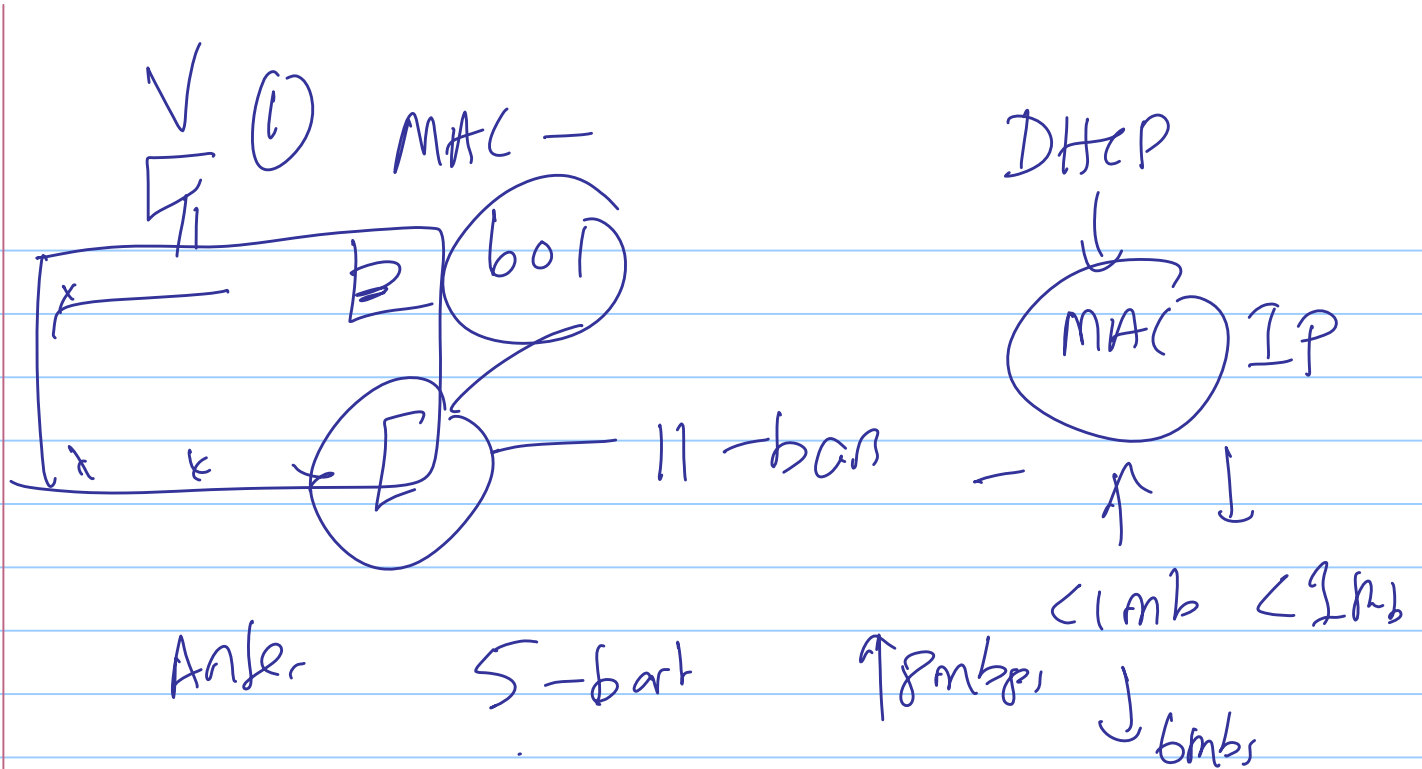 ① MAC — DHCP
601
MAC IP
11 - bars
<1 mb
5 - bar
↑ 8 mbps
↓ 6 mbs